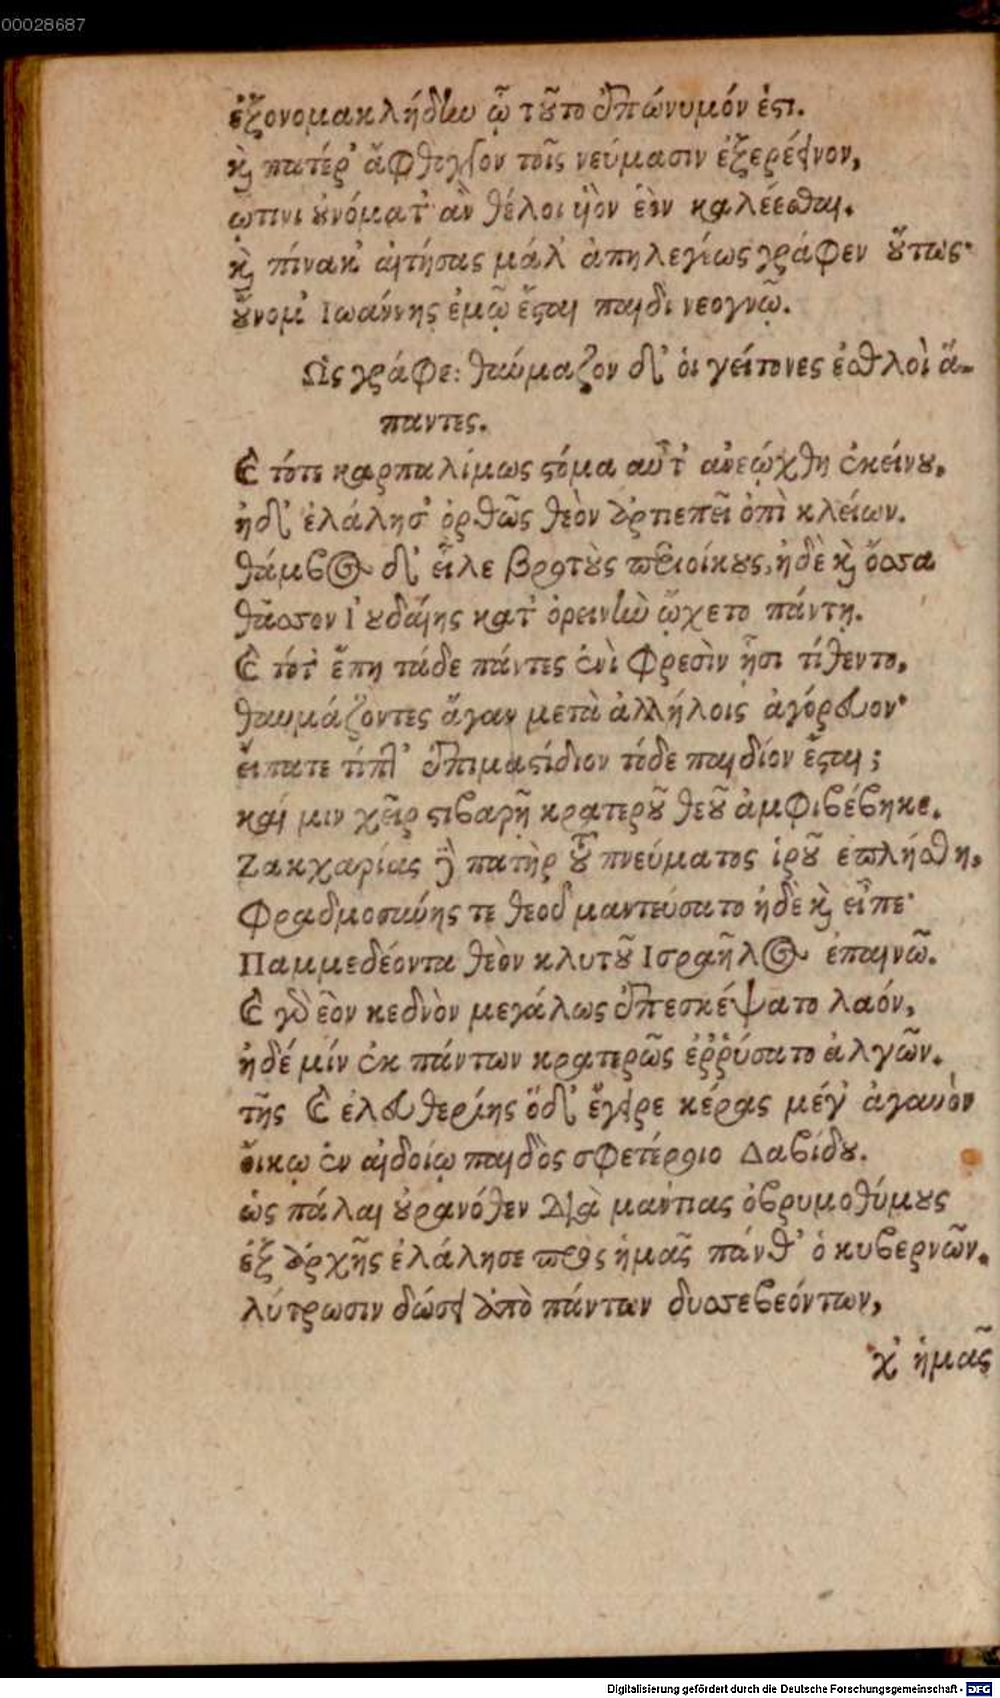 00028687
ἐξονομακλήδην ᾧ τοῦτο ἐπώνυμόν ἐστι.
καὶ πατέρ' ἄφθογγον τοῖς νεύμασιν ἐξερέεινον,
ᾧτινι οὐνόματ' ἂν θέλοι υἱὸν ἑὸν καλέεσθαι.
καὶ πίνακ' αἰτήσας μάλ' ἀπηλεγέως γράφεν οὕτως·
οὔνομ' Ιωάννης ἐμῷ ἔσται παιδὶ νεογνῷ.
Ὣς γράφε: θαύμαζον δ' οἱ γείτονες ἐσθλοὶ ἅ-
παντες.
καὶ τότε καρπαλίμως στόμα αὖτ' ἀνεῴχθη ἐκείνου,
ἠδ' ἐλάλησ' ὀρθῶς θεὸν ἀρτιεπεῖ ὀπὶ κλείων.
θάμβος δ' εἷλε βροτοὺς περιοίκους, ἠδὲ καὶ ὄσσα
θᾶσσον Ἰουδαίης κατ' ὀρεινὴν ᾤχετο πάντη.
καὶ τότ' ἔπη τάδε πάντες ἐνὶ φρεσὶν ᾗσι τίθεντο,
θαυμάζοντες ἄγαν μετὰ ἀλλήλοις ἀγόρευον·
εἴπατε τίπτ' ἐπιμαστίδιον τόδε παιδίον ἔσται;
καί μιν χεῖρ στιβαρῇ κρατεροῦ θεοῦ ἀμφιβέβηκε.
Ζακχαρίας δὲ πατὴρ τοῦ πνεύματος ἱροῦ ἐπλήσθη,
φραδμοσύνης τε θεοῦ μαντεύσατο ἠδὲ καὶ εἶπε·
Παμμεδέοντα θεὸν κλυτοῦ Ισραῆλος ἐπαινῶ.
καὶ γὰρ ἑὸν κεδνὸν μεγάλως ἐπεσκέψατο λαόν,
ἠδέ μίν ἐκ πάντων κρατερῶς ἐῤῥύσατο ἀλγῶν.
τῆς καὶ ἐλευθερίης ὅδ' ἔγειρε κέρας μέγ' ἀγαυὸν
οἴκῳ ἐν αἰδοίῳ παιδὸς σφετέροιο Δαβίδου.
ὡς πάλαι οὐρανόθεν διὰ μάντιας ὀβρυμοθύμους
ἐξ ἀρχῆς ἐλάλησε πρὸς ἡμᾶς πάνθ' ὁ κυβερνῶν.
λύτρωσιν δώσει ἀπὸ πάντων δυσσεβεόντων,
χ' ἡμᾶς
Digitalisierung gefördert durch die Deutsche Forschungsgemeinschaft - DFG